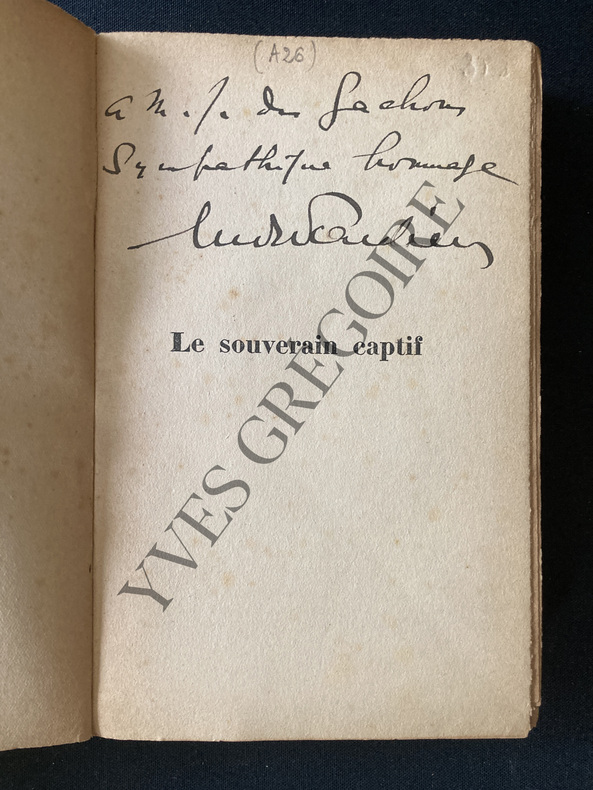 (A26)
à M. J. des Gachons
Sympathique hommage
André Tardieu
Le souverain captif
YVES GREGOIRE